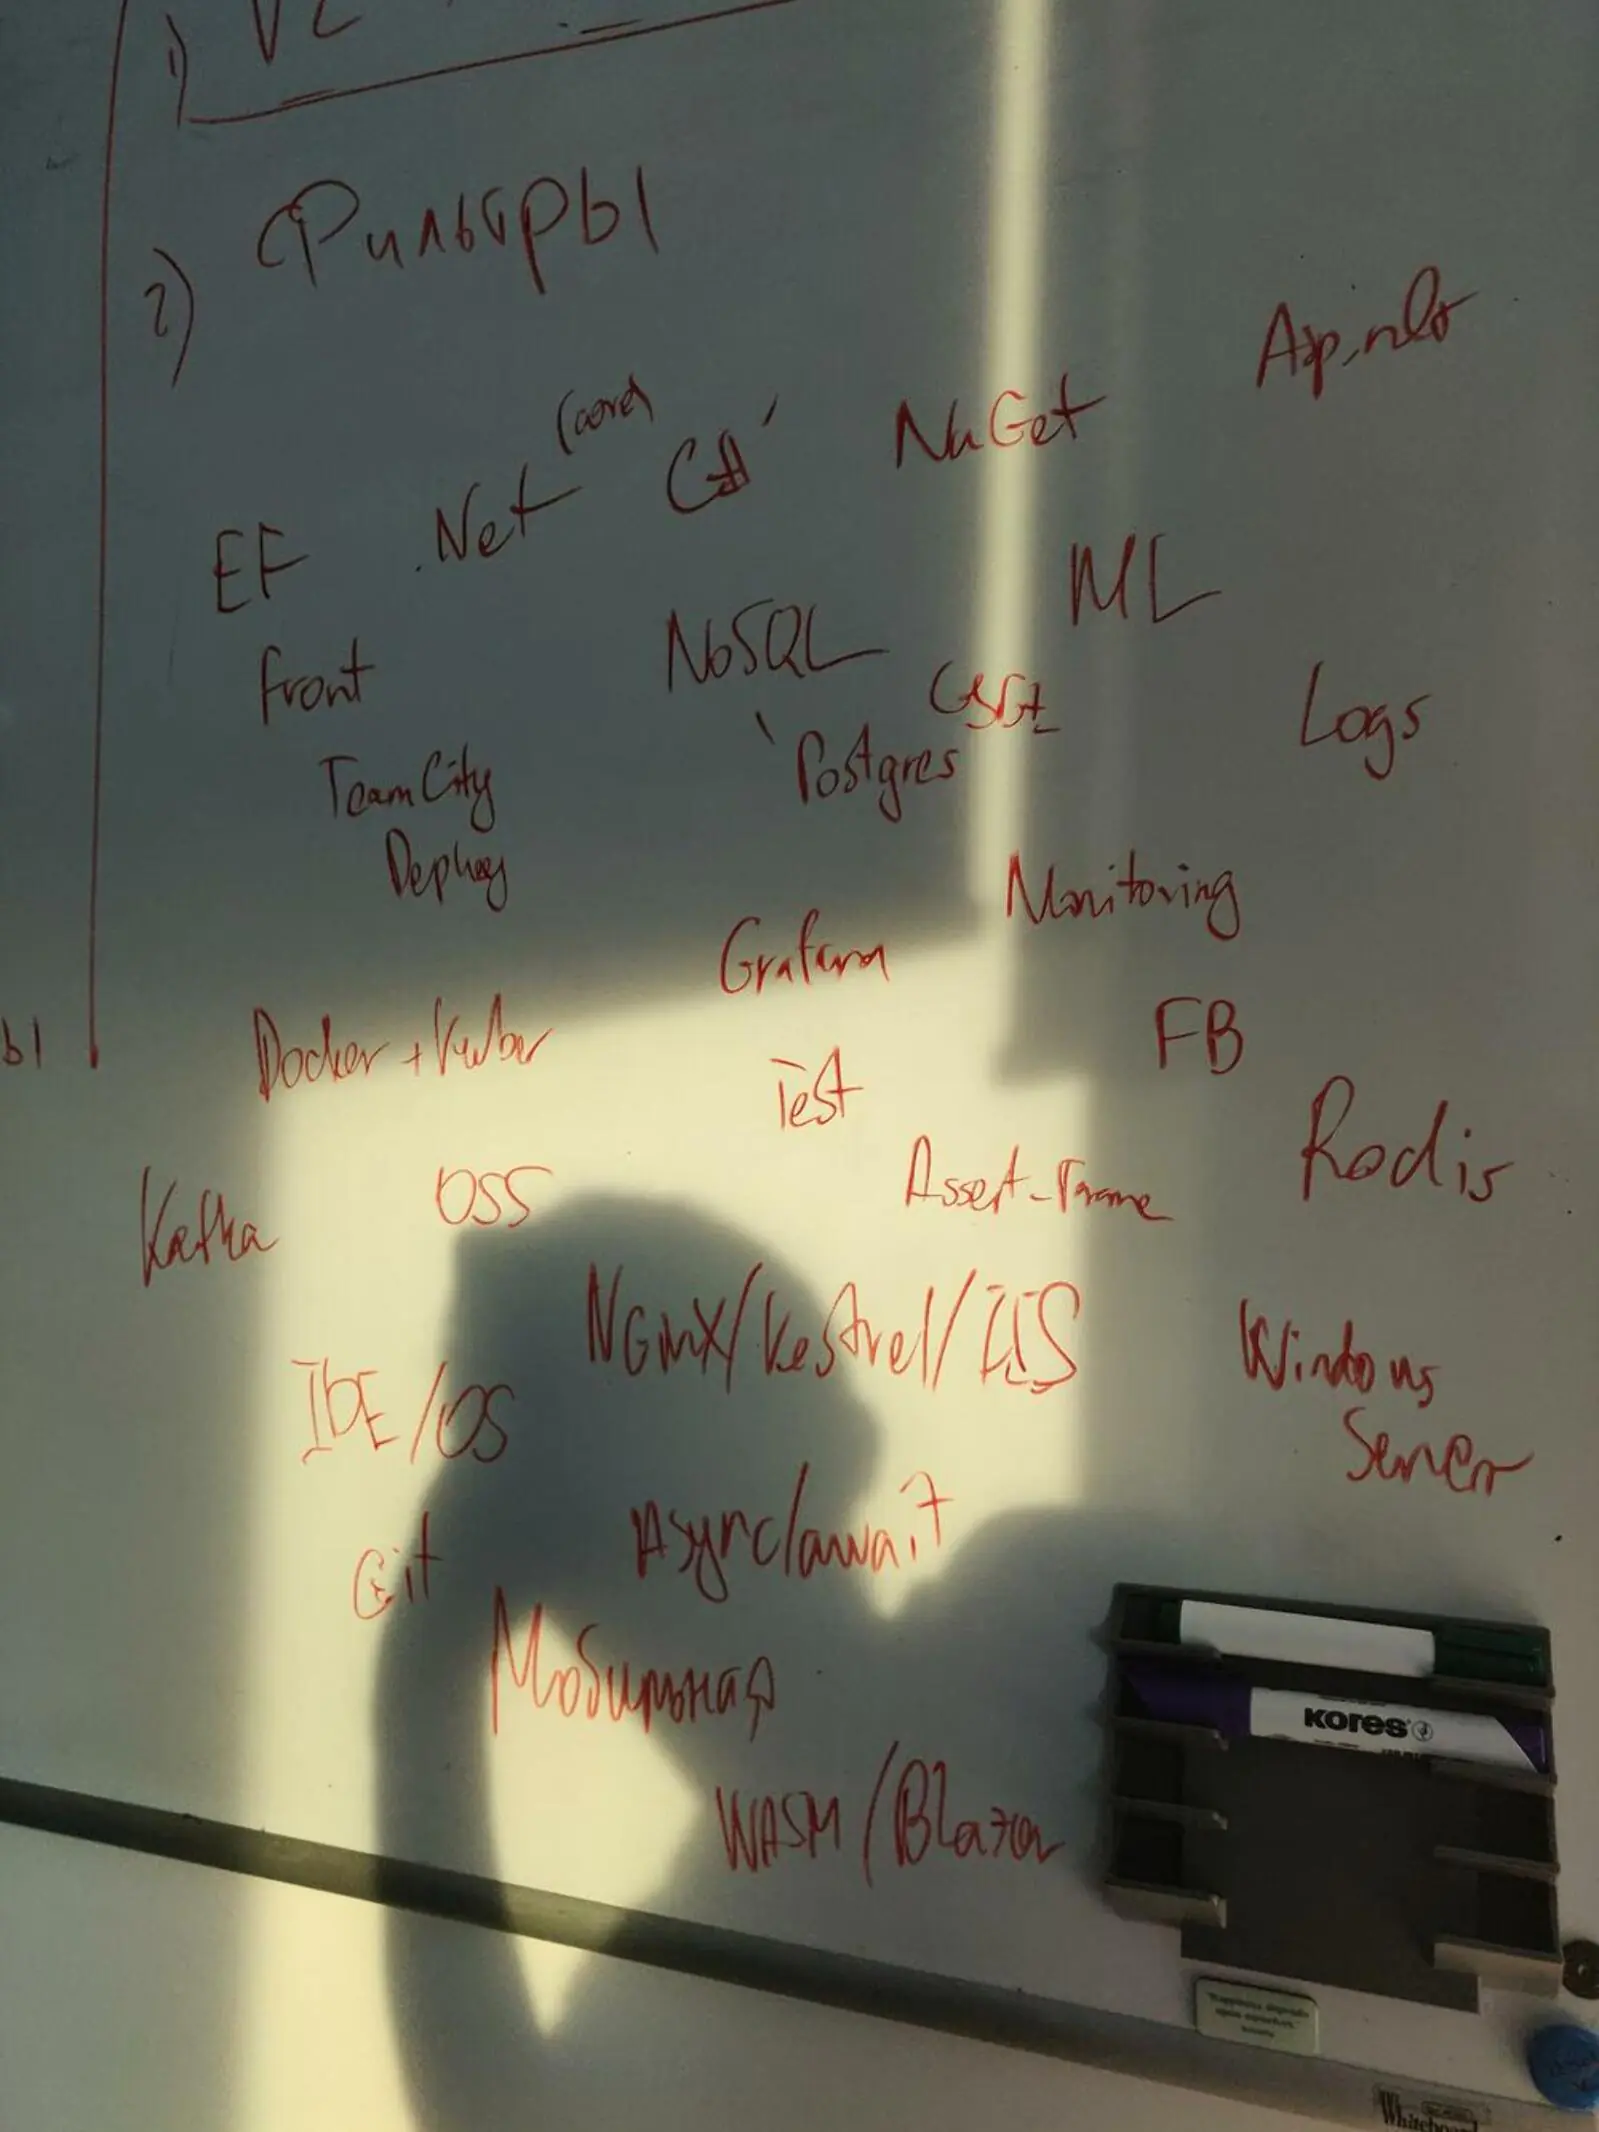 1)
2) Фильтры
Asp.net
(core)
.Net C# NuGet
EF
ML
NoSQL
Front
Logs
Postgres
TeamCity
Deploy
Monitoring
Grafana
ы
Docker + Kuber
FB
Test
Redis
Kafka
OSS
Assert-Frame
NGinX/Kestrel/IIS
IDE/OS
Windows
Server
Async/await
Git
Мобильная
kores
WASM/Blazor
Whiteboard